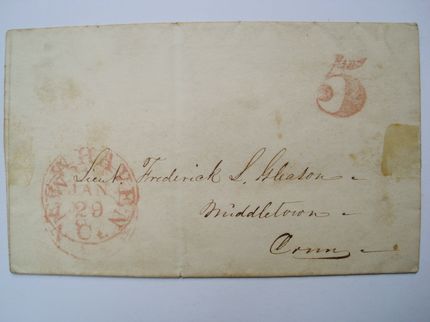 PAID
5
NEW HAVEN
JAN
29
Ct.
Lieut. Frederick S. Gleason
Middletown
Conn